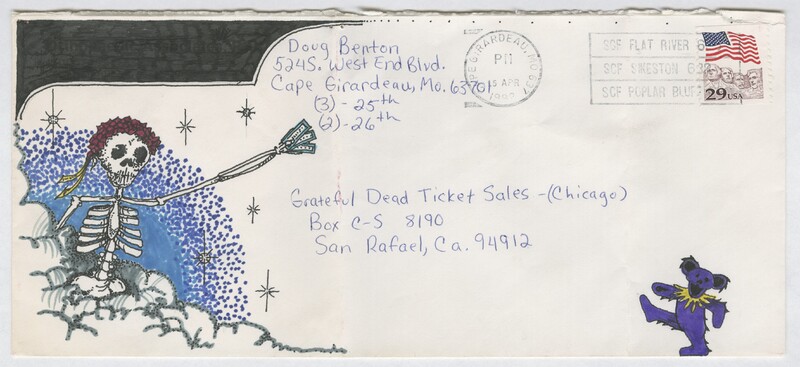 Doug Benton
524 S. West End Blvd.
Cape Girardeau, Mo. 63701
(3) - 25th
(2) - 26th
CAPE GIRARDEAU, MO
PM
15 APR
SCF FLAT RIVER
SCF SIKESTON
SCF POPLAR BLUFF
29 USA
Grateful Dead Ticket Sales - (Chicago)
Box C-S 8190
San Rafael, Ca. 94912